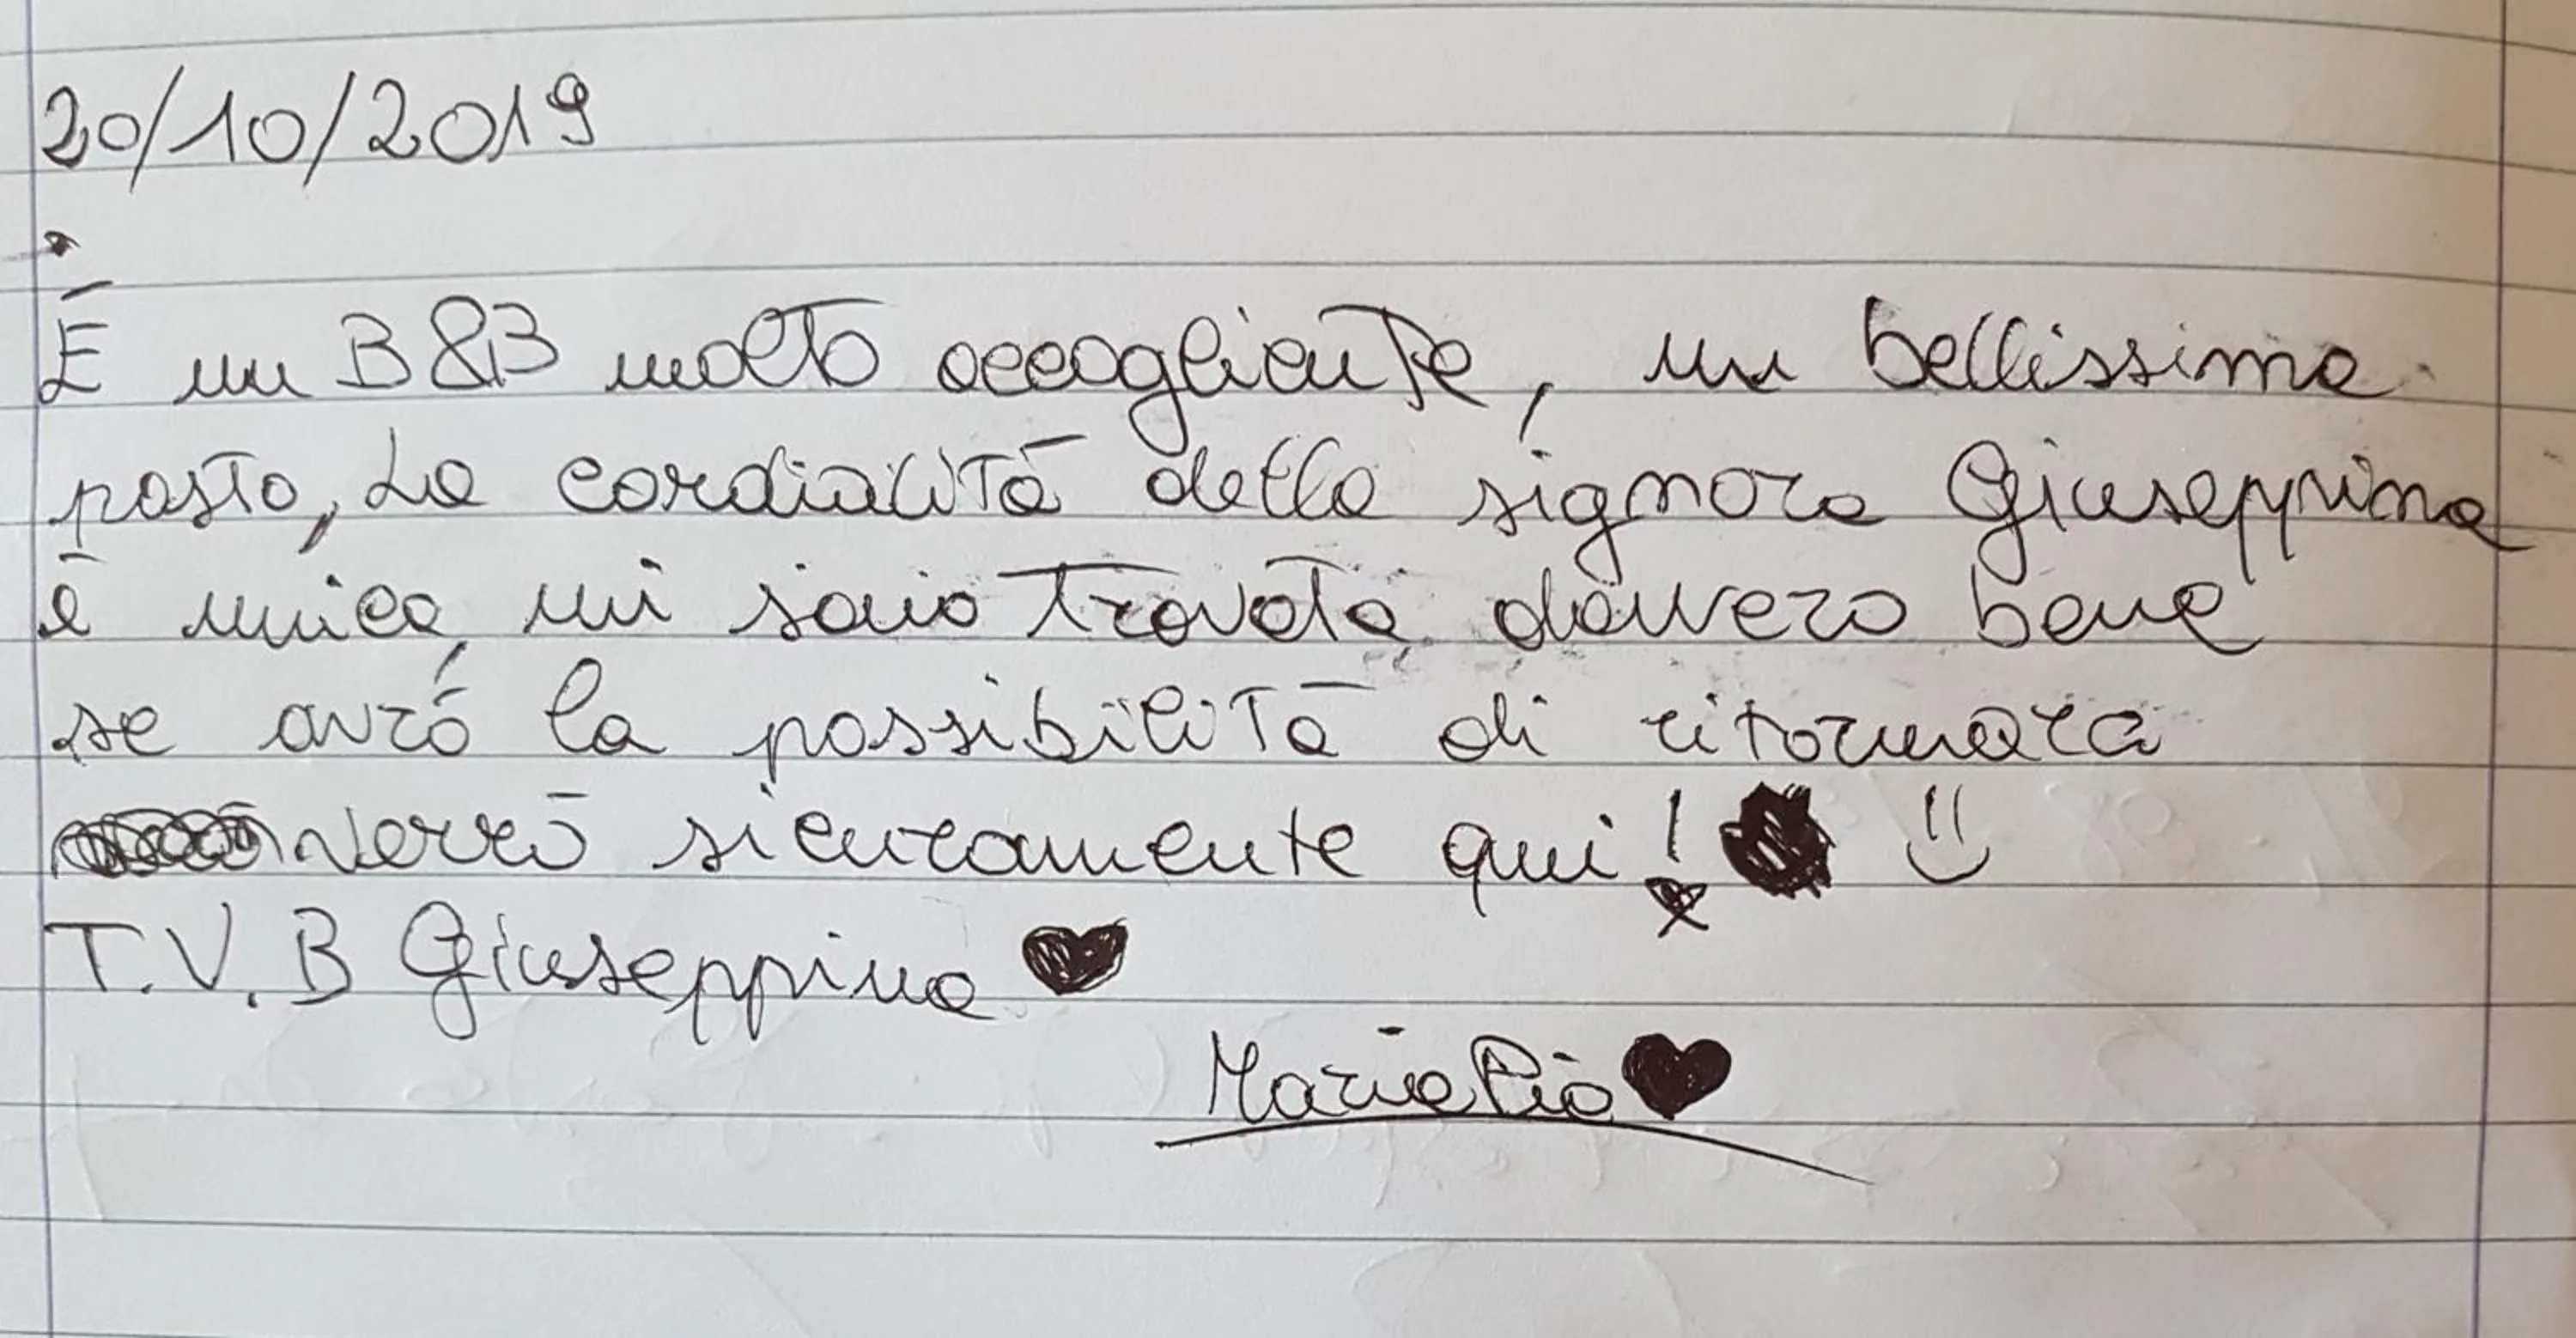 20/10/2019
É un B&B molto accogliente, un bellissima
posto, La cordialità della signora Giuseppina
è unica, mi sono trovata davvero bene
se avró la possibilità di ritornare
verrò sicuramente qui!
T.V.B Giuseppina
Maria Pia